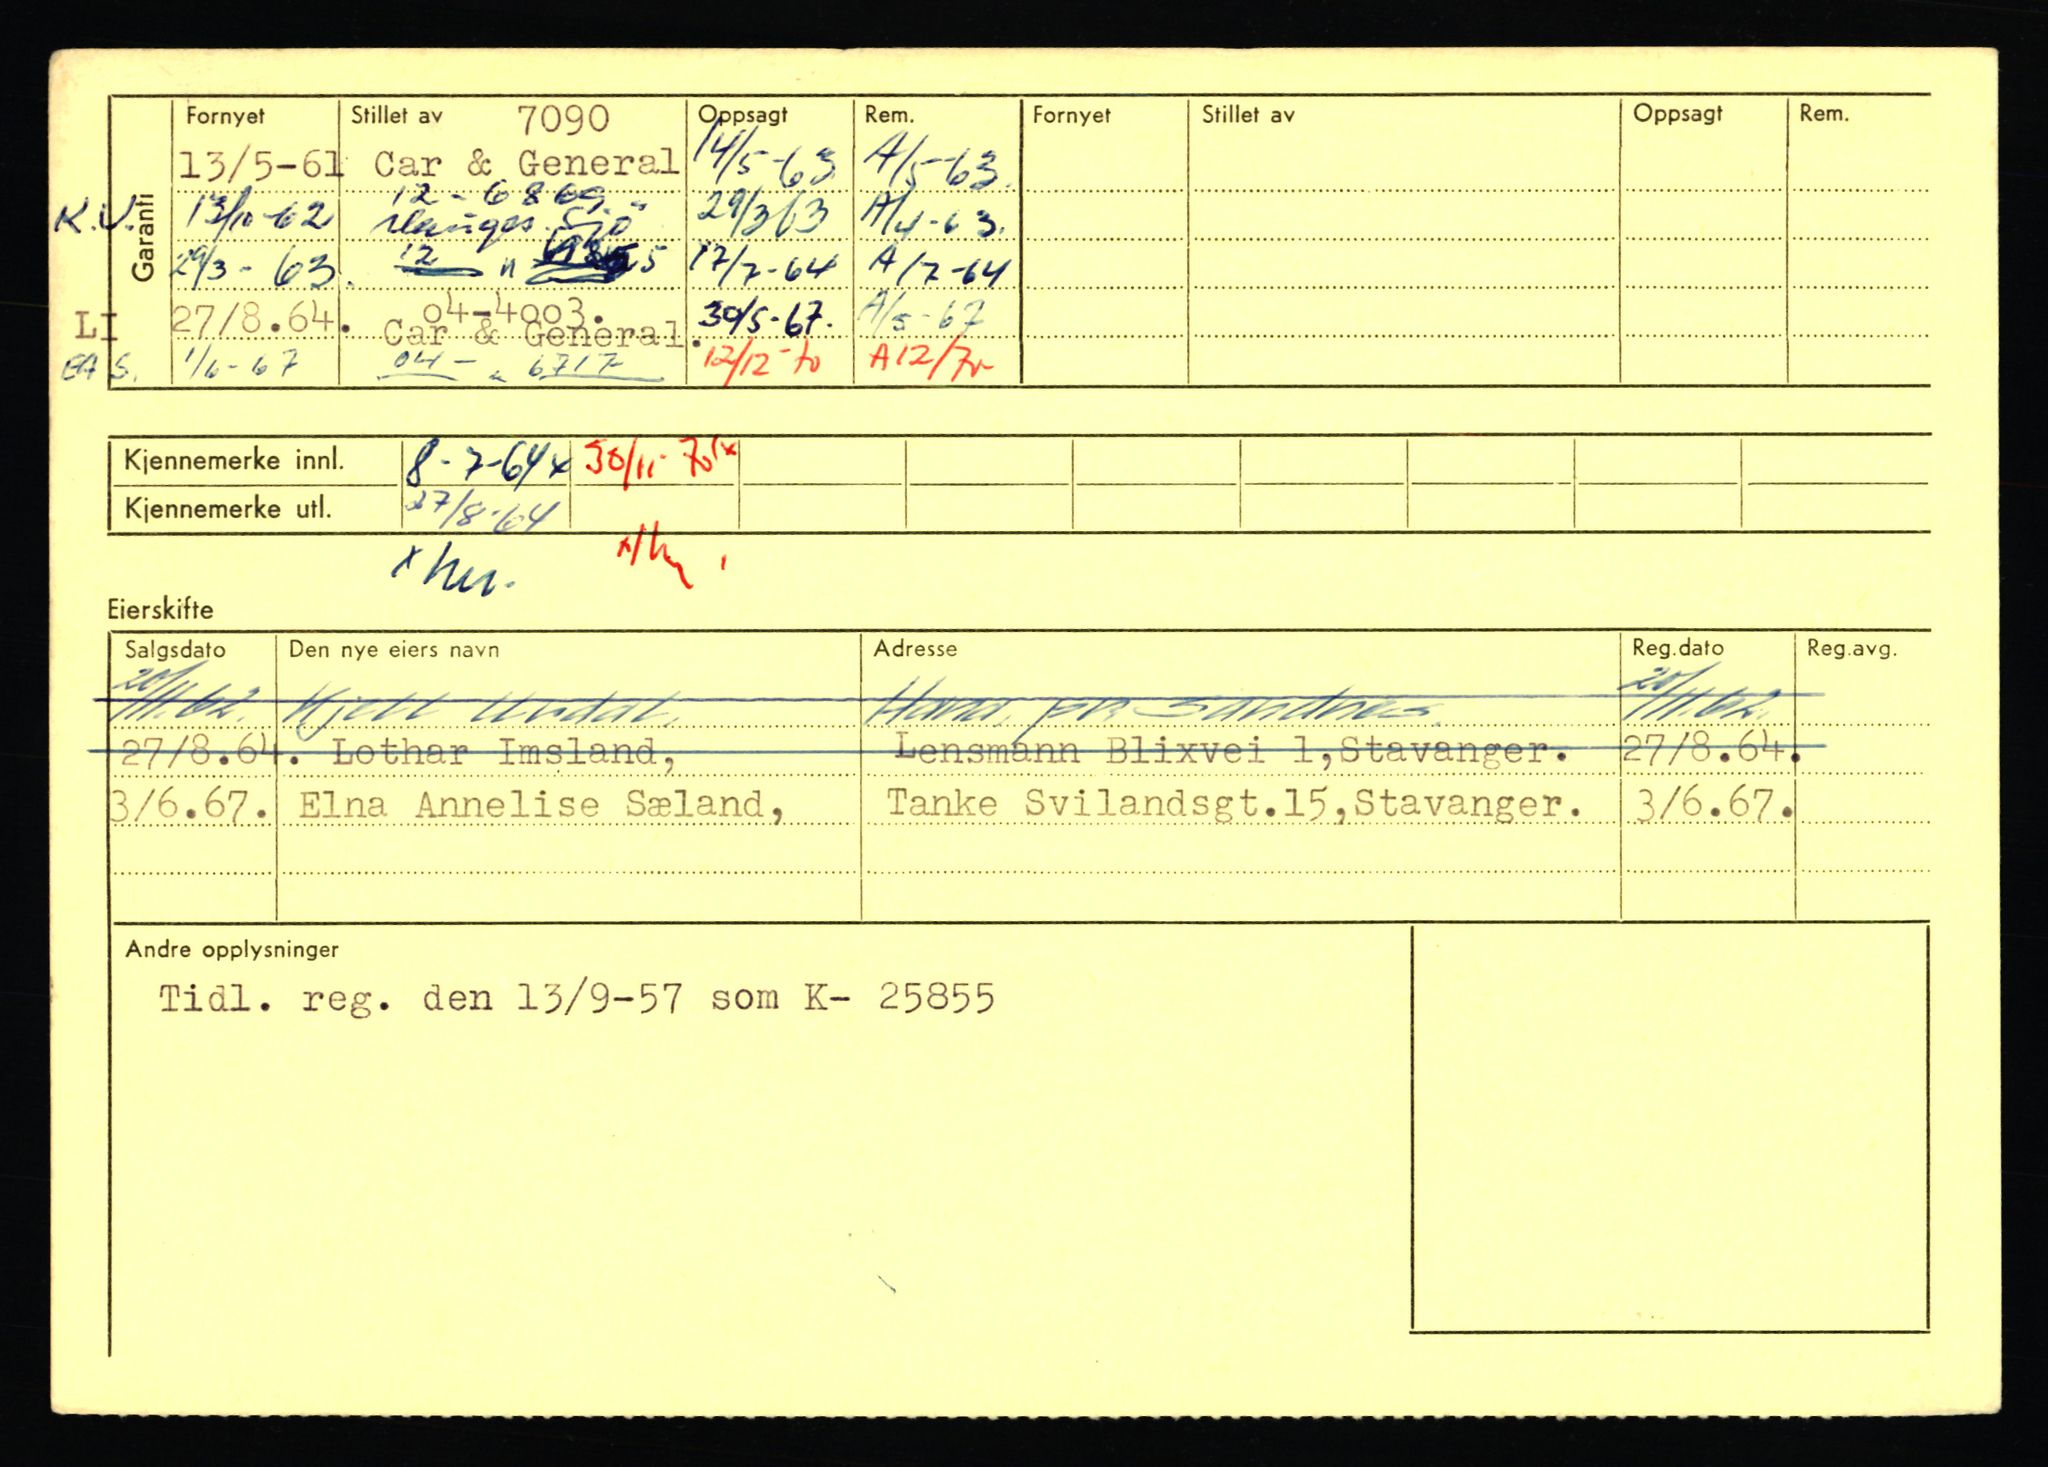 Garanti
Fornyet Stillet av 7090 Oppsagt Rem. Fornyet Stillet av Oppsagt Rem.
13/5-61 Car & General 14/5-63 A/5-63.
12-6869
K.V. 13/10-62 Sjø 29/3 63 A/4-63.
29/3-63. 12 " 17/7-64 A/7-64
04-4003.
LI 27/8.64. Car & General. 30/5-67. A/5-67
1/6-67 04- " 6717 12/12-70 A12/70
Kjennemerke innl. 8-7-64 x 30/11-70 x
Kjennemerke utl. 27/8-64
Eierskifte
Salgsdato Den nye eiers navn Adresse Reg.dato Reg.avg.
20/11.62. Kjell Undal, Hana, pr. Sandnes. 20/11.62.
27/8.64. Lothar Imsland, Lensmann Blixvei 1,Stavanger. 27/8.64.
3/6.67. Elna Annelise Sæland, Tanke Svilandsgt.15,Stavanger. 3/6.67.
Andre opplysninger
Tidl. reg. den 13/9-57 som K- 25855